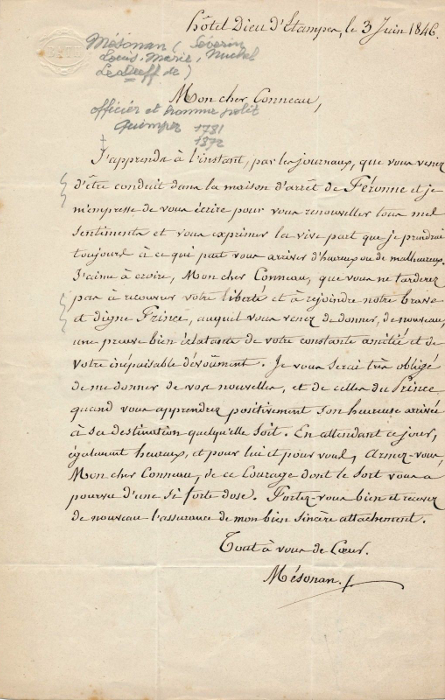 hôtel Dieu d'Etampes, le 3 Juin 1846.
Mésonan (Séverin
Louis-Marie, Michel
Le Duff de)
Mon cher Conneau,
officier et homme polit
Quimper 1781
† 1872
J'apprends à l'instant, par les journaux, que vous venez
d'être conduit dans la maison d'arrêt de Péronne et je
m'empresse de vous écrire pour vous renouveller tous mes
sentiments et vous exprimer la vive part que je prendrai
toujours à ce qui peut vous arriver d'heureux ou de malheureux.
J'aime à croire, Mon cher Conneau, que vous ne tarderez
pas à recouvrer votre liberté et à rejoindre notre brave
et digne Prince, auquel vous venez de donner, de nouveau,
une preuve bien éclatante de votre constante amitié et de
votre inépuisable dévoûment. Je vous serai très obligé
de me donner de vos nouvelles, et de celles du Prince
quand vous apprendrez positivement son heureuse arrivée
à sa destination quelqu'elle soit. En attendant ce jour,
également heureux, et pour lui et pour vous, Armez-vous,
Mon cher Conneau, de ce Courage dont le sort vous a
pourvu d'une si forte dose. Portez-vous bien et recevez
de nouveau l'assurance de mon bien sincère attachement.
Tout à vous de Cœur.
Mésonan.